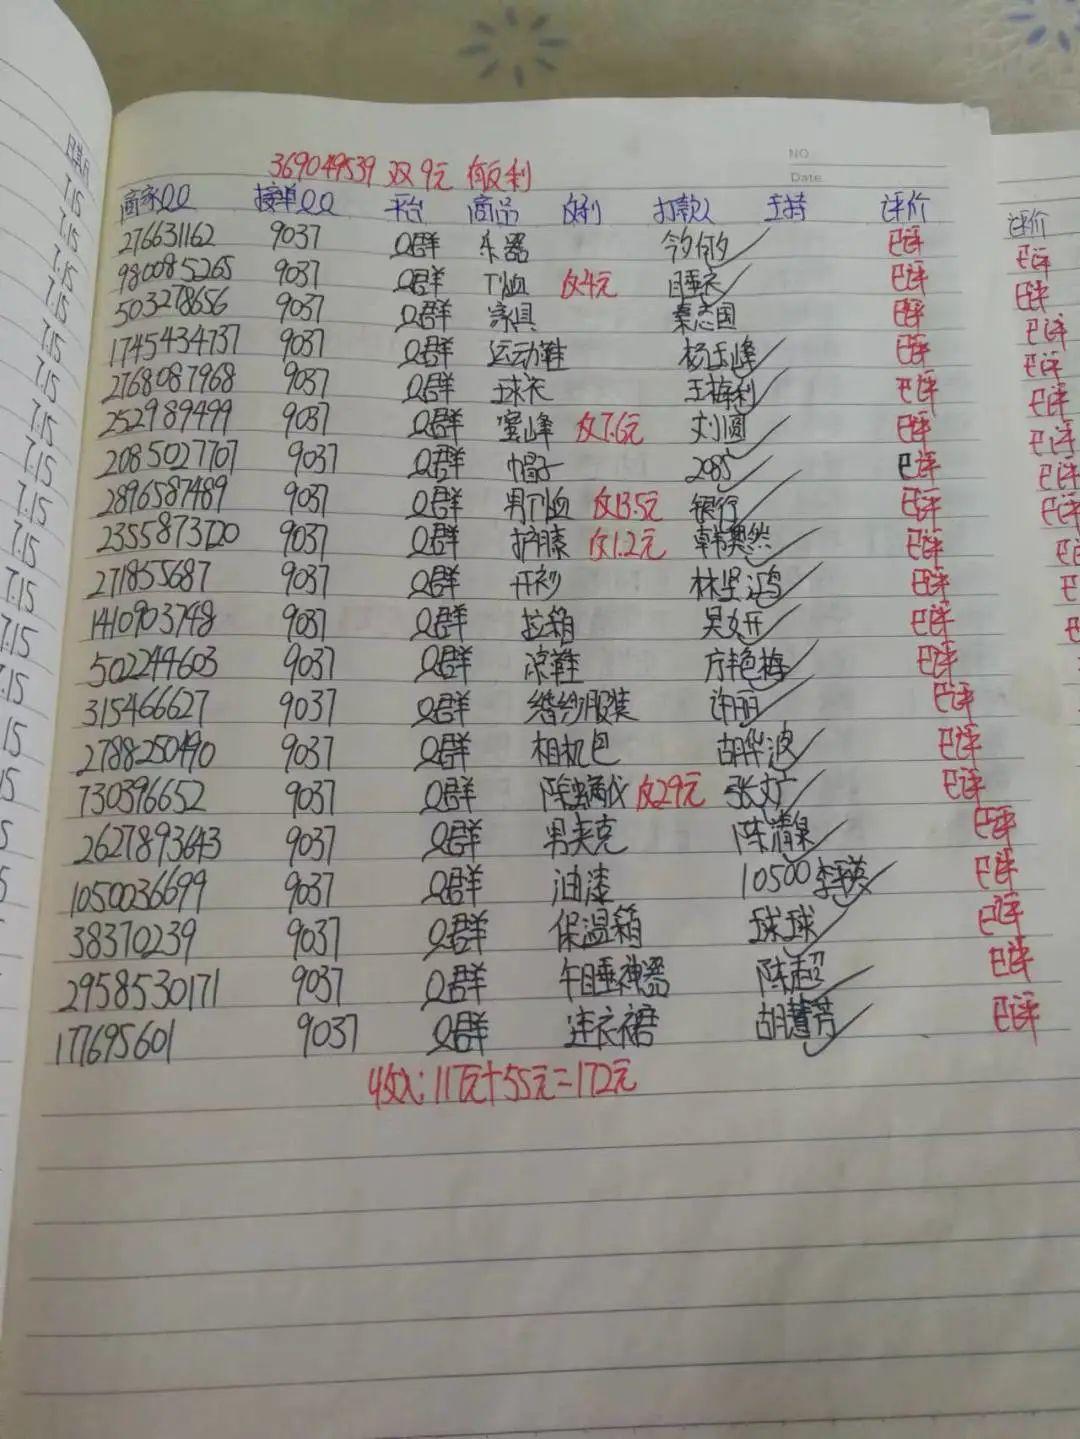 NO
Date
369049539 双9元 有反利
商家QQ 接单QQ 平台 商品 反利 打款人 支持 评价
276631162 9037 Q群 乐器 已评
980085265 9037 Q群 T恤 反4元 睡衣 已评
503278656 9037 Q群 家具 秦志国 已评
1745434737 9037 Q群 运动鞋 杨玉峰 已评
2768087968 9037 Q群 球衣 王梅利 已评
252989499 9037 Q群 蜜蜂 反7.6元 刘圆 已评
2085027707 9037 Q群 帽子 2085 已评
2896587489 9037 Q群 男T恤 反13.5元 银行 已评
2355873720 9037 Q群 护膝 反1.2元 韩奥然 已评
271855687 9037 Q群 开衫 林坚鸿 已评
1410903748 9037 Q群 拉箱 吴文开 已评
502244603 9037 Q群 凉鞋 方艳梅 已评
315466627 9037 Q群 婚纱服装 许丽 已评
2788250490 9037 Q群 相机包 胡华波 已评
730396652 9037 Q群 除螨仪 反29元 张文广 已评
2627893643 9037 Q群 男夹克 陈清泉 已评
1050036699 9037 Q群 油漆 10500 李英 已评
38370239 9037 Q群 保温箱 球球 已评
2958530171 9037 Q群 午睡神器 陈超 已评
177695601 9037 Q群 连衣裙 胡慧芳 已评
收入:117元+55元=172元
日期
7.15
7.15
7.15
7.15
7.15
7.15
7.15
7.15
7.15
7.15
7.15
7.15
7.15
评价
已评
已评
已评
已评
已评
已评
已评
已评
已评